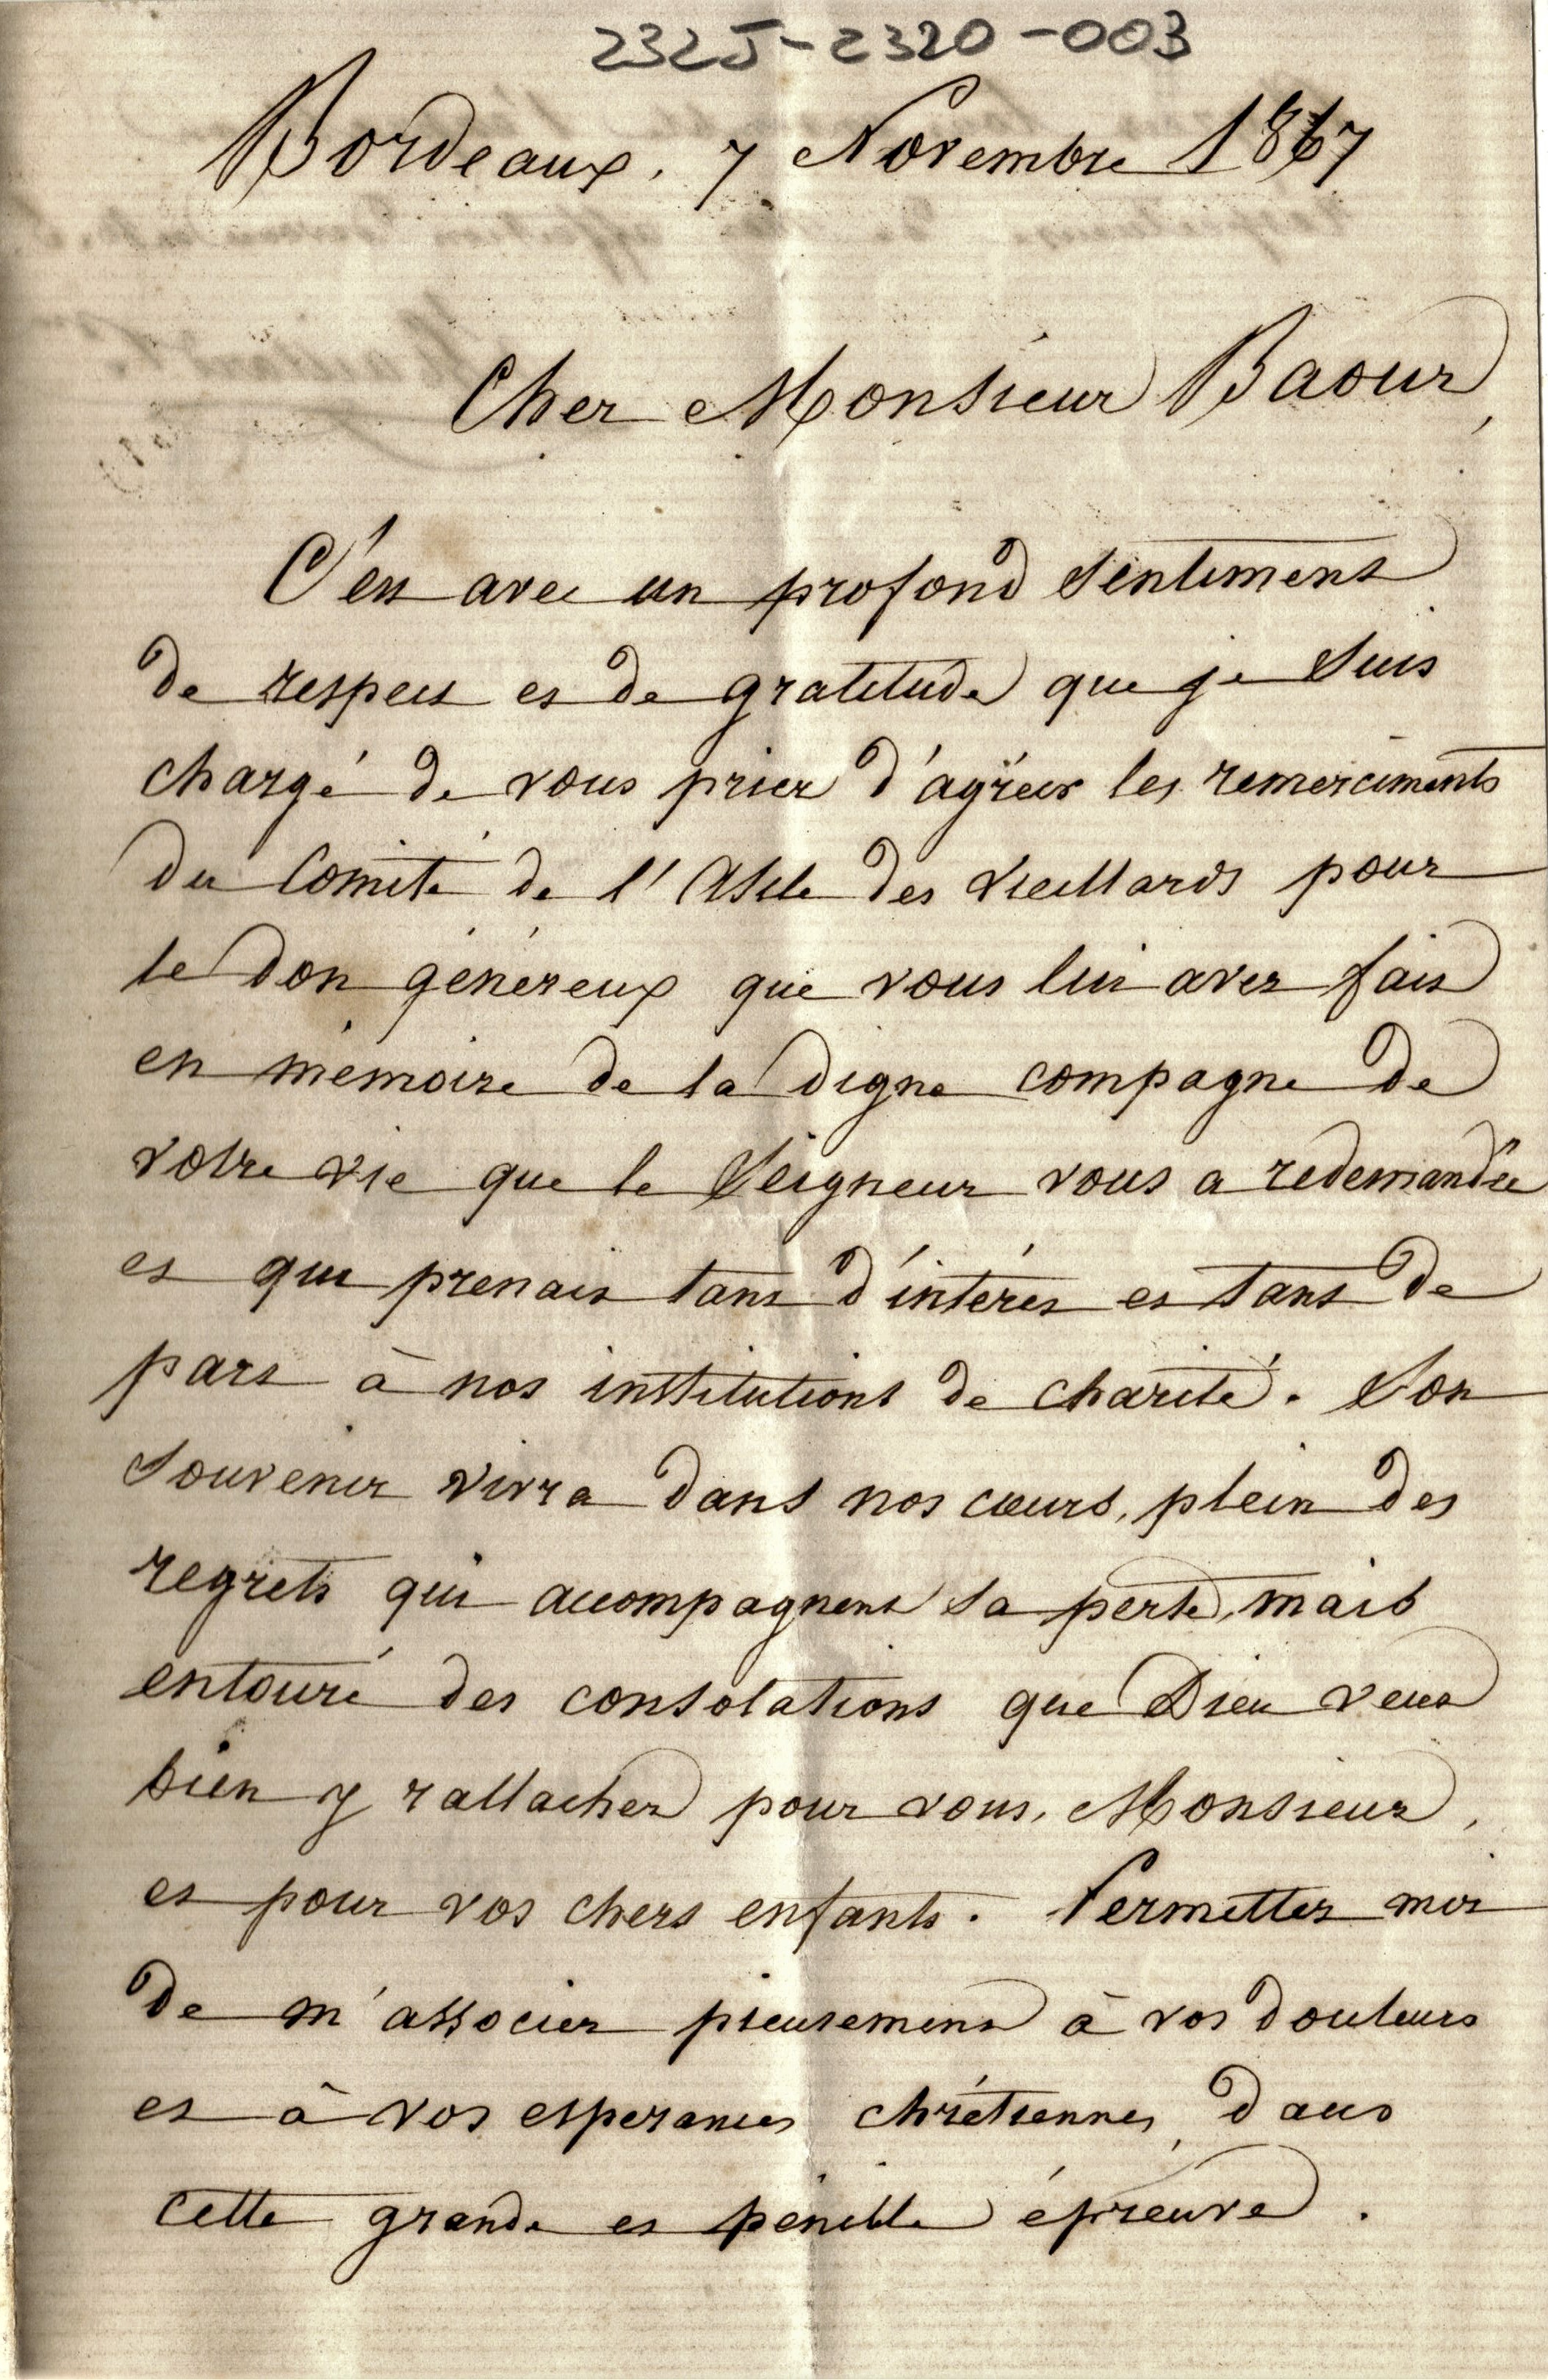 232J-2320-003
Bordeaux, 7 Novembre 1867
Cher Monsieur Baour,
C'est avec un profond sentiment
de respect et de gratitude que je suis
chargé de vous prier d'agréer les remerciments
du Comité de l'Asile des vieillards pour
le don généreux que vous lui avez fait
en mémoire de la digne compagne de
votre vie que le Seigneur vous a redemandée
et qui prenait tant d'intérêt et tant de
part à nos institutions de charité. Son
souvenir vivra dans nos cœurs, plein des
regrets qui accompagnent sa perte, mais
entouré des consolations que Dieu veut
bien y rattacher pour vous, Monsieur,
et pour vos chers enfants. Permettez moi
de m'associer pieusement à vos douleurs
et à vos esperances chrétiennes, dans
cette grande et pénible épreuve.